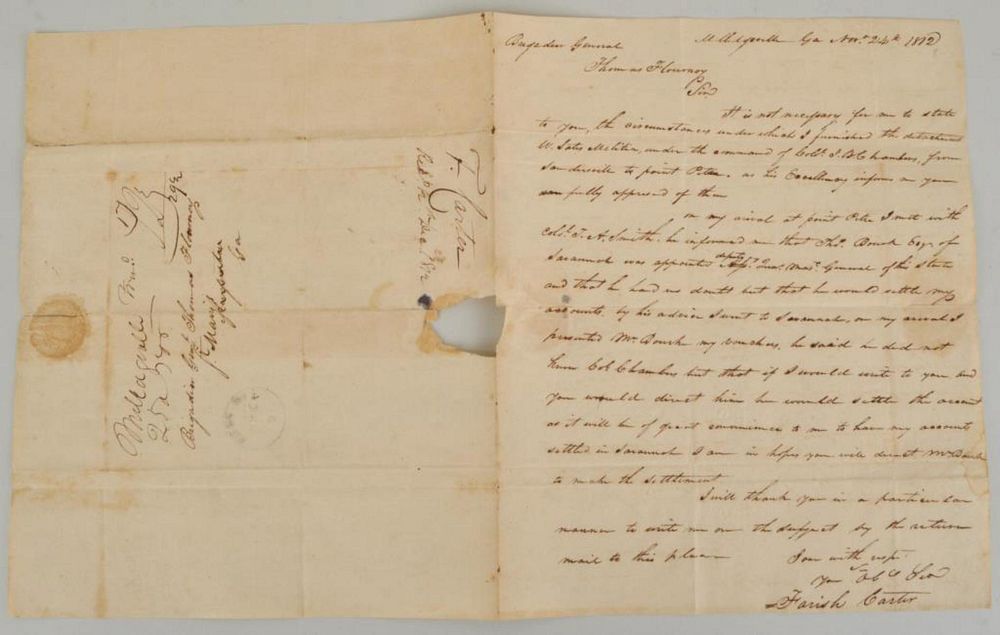 Brigadier General Milledgeville Ga Novr. 24th 1812
Thomas Flournoy
Sir
It is not necessary for me to state
to you, the circumstances under which I furnished the detachment
U. States Militia, under the command of Colo. J. B. Chambers, from
to point Peter. as his Excellency informs me you
are fully apprised of them
on my arival at point Peter I met with
Colo. T. A. Smith, he informed me that Thos. Bourk Esqr. of
Savannah was appointed deputy Qur. Masr. General of this State
and that he had no doubt but that he would settle my
accounts, by his advice I went to Savannah, on my arival I
presented Mr. Bourk my vouchers, he said he did not
know Col. Chambers but that if I would write to you and
you would direct him he would settle the account
as it will be of great convenience to me to have my accounts
settled in Savannah I am in hopes you will direct Mr. Bourk
to make the settlement
I will thank you in a particular
manner to write me on the subject by the return
mail to this place
I am with respt.
Your Obt. Ser
Farish Carter
F. Carter
Milledgeville
Brigadier Genl. Thomas Flournoy
St. Marys
Ga